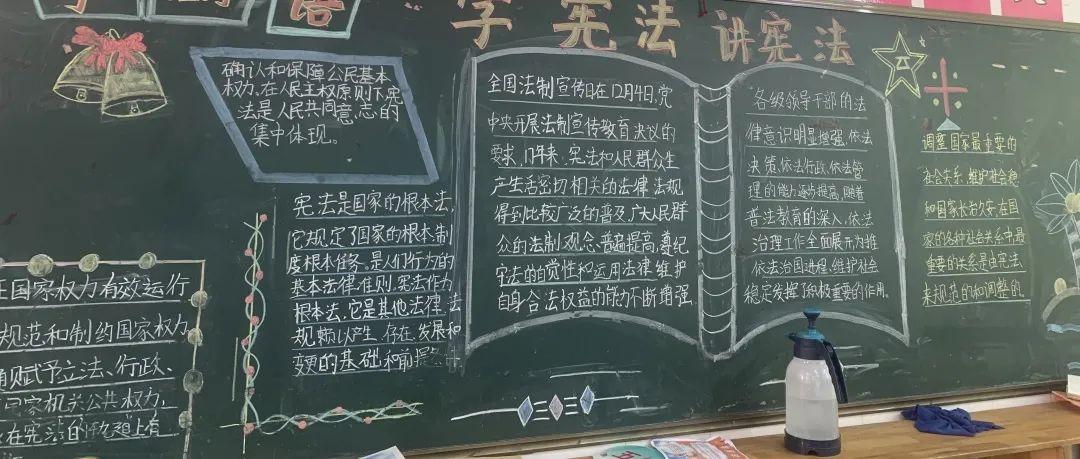 语
学宪法 讲宪法
确认和保障公民基本
权力、在人民主权原则下宪
法是人民共同意志的
集中体现。
宪法是国家的根本法,
它规定了国家的根本制
度根本任务、是人们行为的
基本法律准则,宪法作为
根本法,它是其他法律、法
规赖以产生、存在、发展和
变更的基础和前提
国家权力有效运行
规范和制约国家权力
赋予立法、行政、
国家机关公共权力,
在宪法的轨道上有
全国法制宣传日在12月4日,党
中央开展法制宣传教育决议的
要求,17年来,宪法和人民群众生
产生活密切相关的法律法规
得到比较广泛的普及,广大人民群
众的法制观念普遍提高,遵纪
守法的自觉性和运用法律维护
自身合法权益的能力不断增强.
各级领导干部的法
律意识明显增强,依法
决策、依法行政、依法管
理的能力逐步提高,随着
普法教育的深入,依法
治理工作全面展开,为推
依法治国进程,维护社会
稳定发挥了积极重要的作用。
调整国家最重要的
社会关系,维护社会稳
和国家长治久安,在国
家的各种社会关系中最
重要的关系是由宪法
来规范的和调整的.